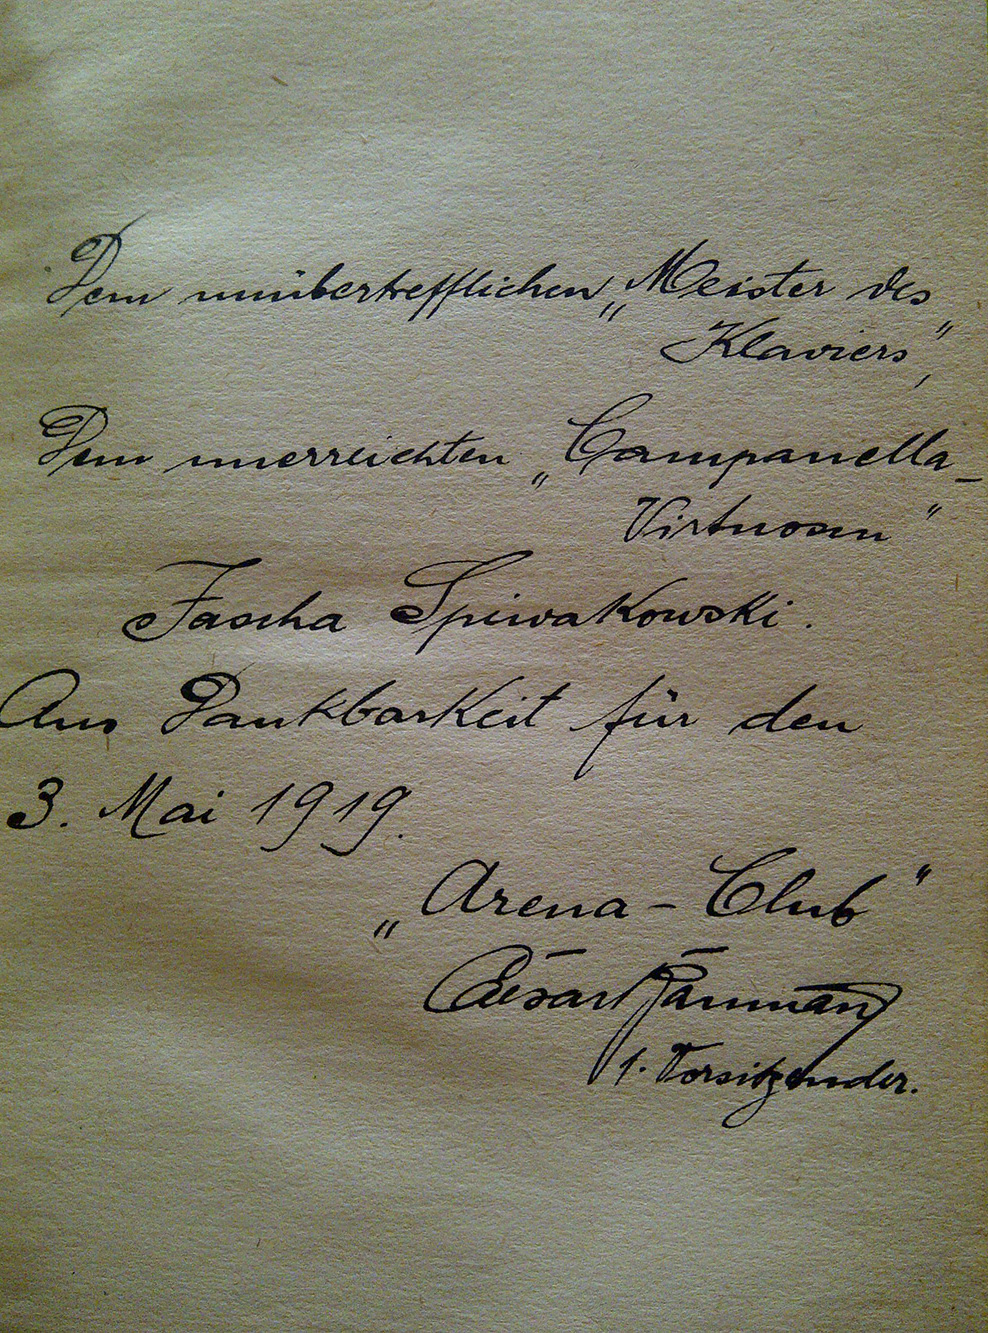 Dem unübertrefflichen „Meister des
Klaviers",
Dem unerreichten „Campanella-
Virtuosen"
Jascha Spiwakowski.
Aus Dankbarkeit für den
3. Mai 1919.
„Arena-Club"
Caesar
1. Vorsitzender.